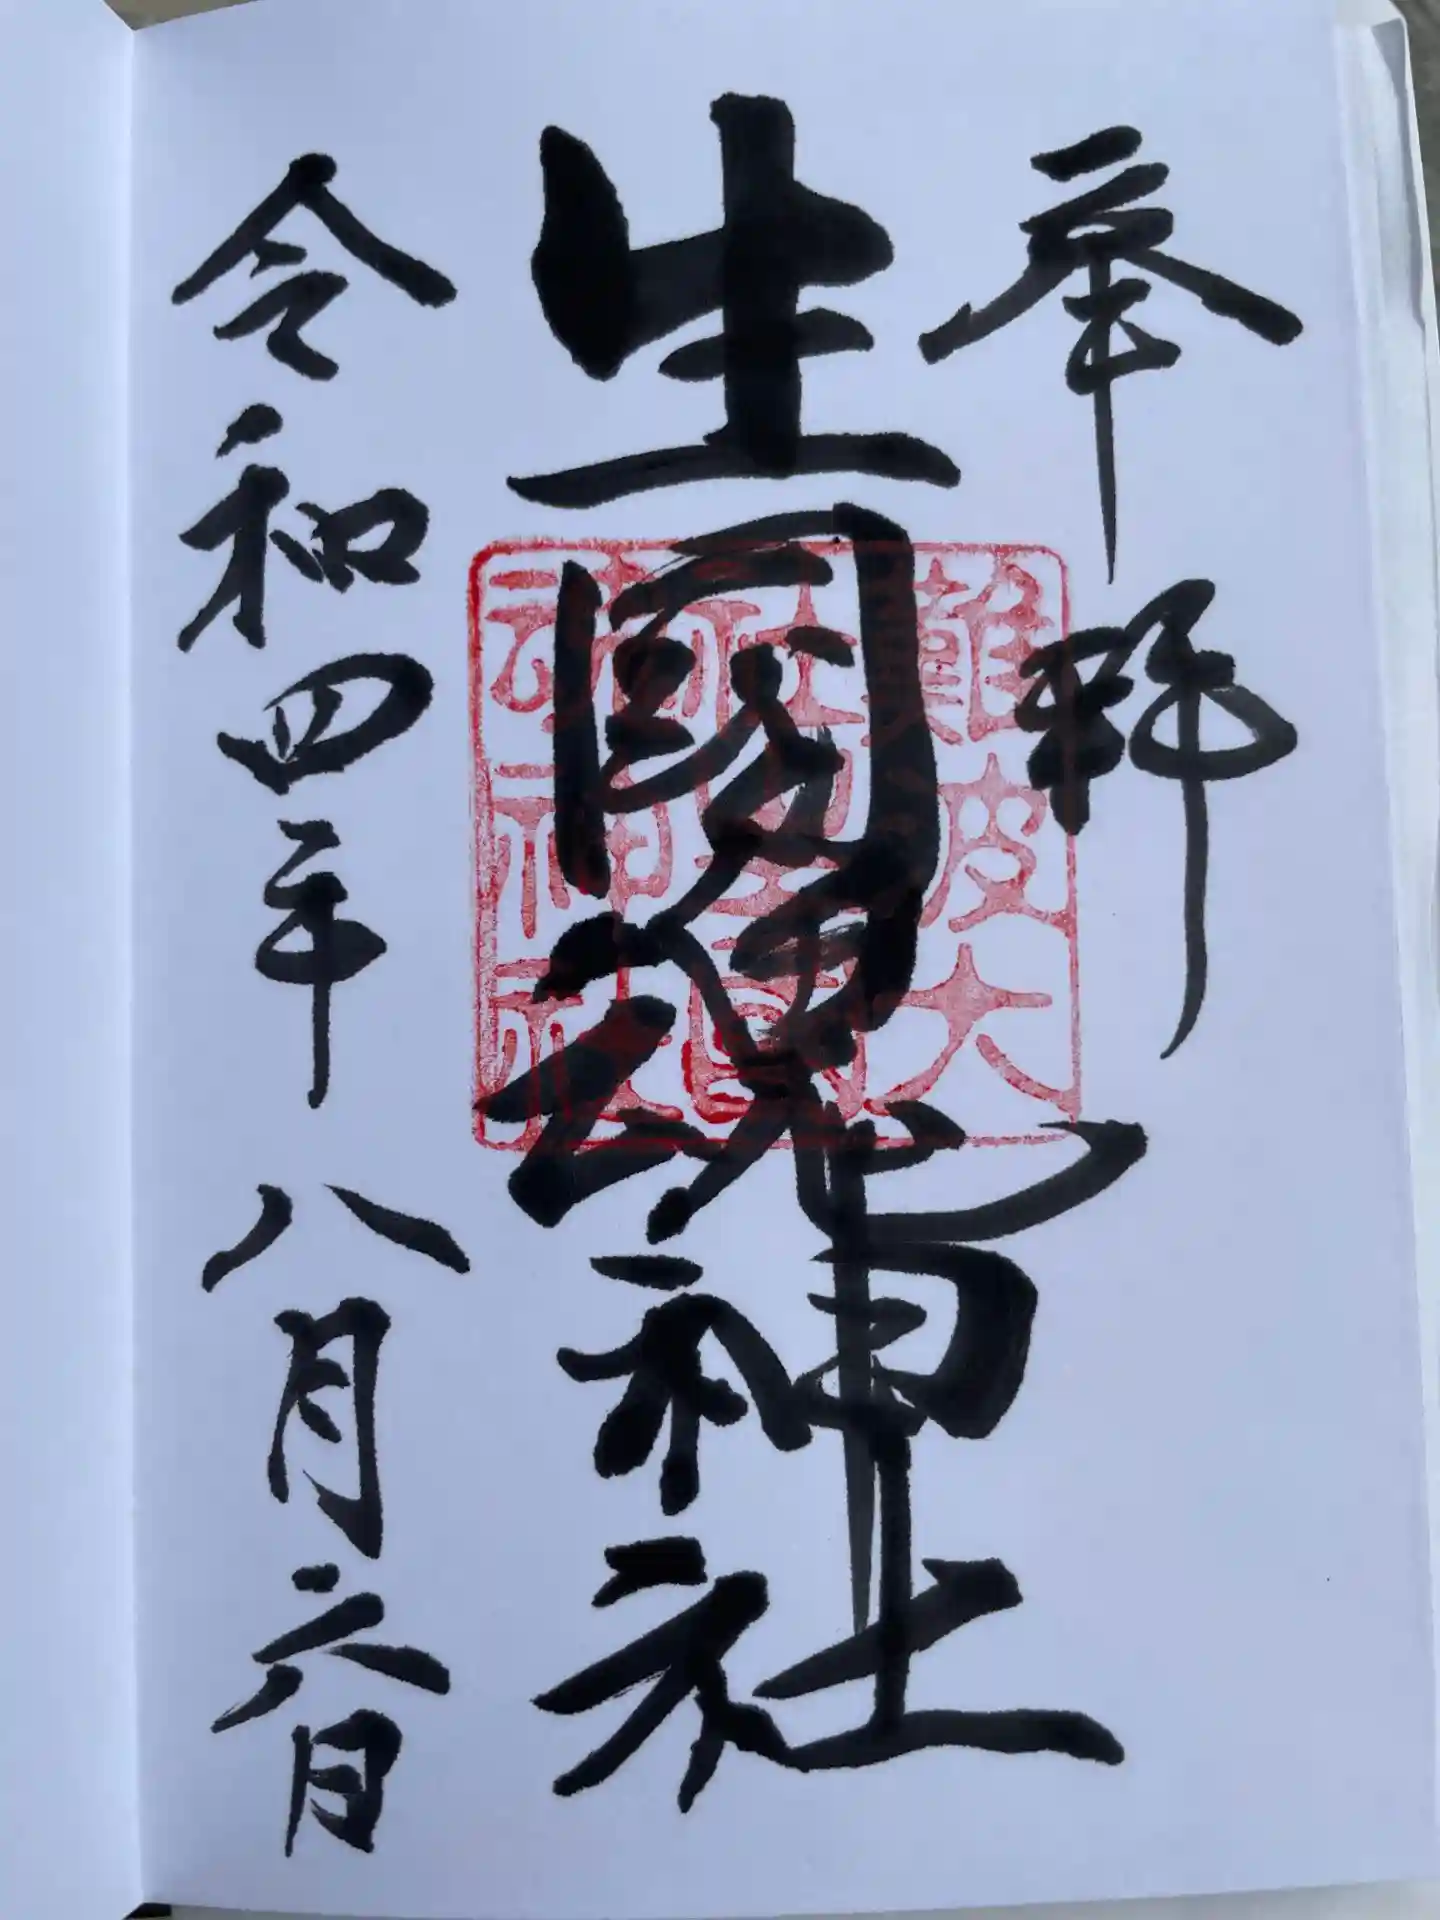 奉拝
生國魂神社
難波大
社生國
魂神社
令和四年八月六日